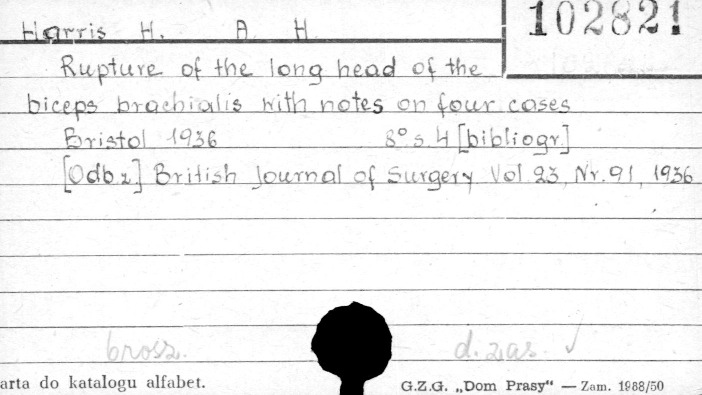 Harris H. A H
102821
Rupture of the long head of the
biceps brachialis with notes on four cases
Bristol 1936 8° s. 4 [bibliogr.]
[Odb. z] British Journal of Surgery Vol 23, Nr. 91, 1936
brosz. d. zas. ✓
arta do katalogu alfabet. G.Z.G. „Dom Prasy“ — Zam. 1988/50